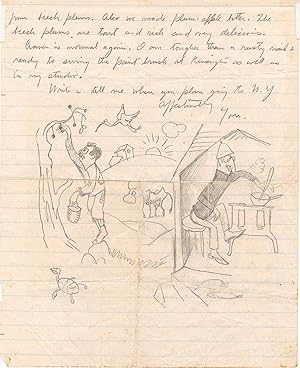 your beech plums. Also we made plum-apple butter. The
beech plums are tart and rich and very delicious.
is normal again. I am tougher than a rusty nail &
ready to swing the paint brush at as well as
in my studio.
Write & tell me when you plan going to N.Y
Affectionately
Yours.